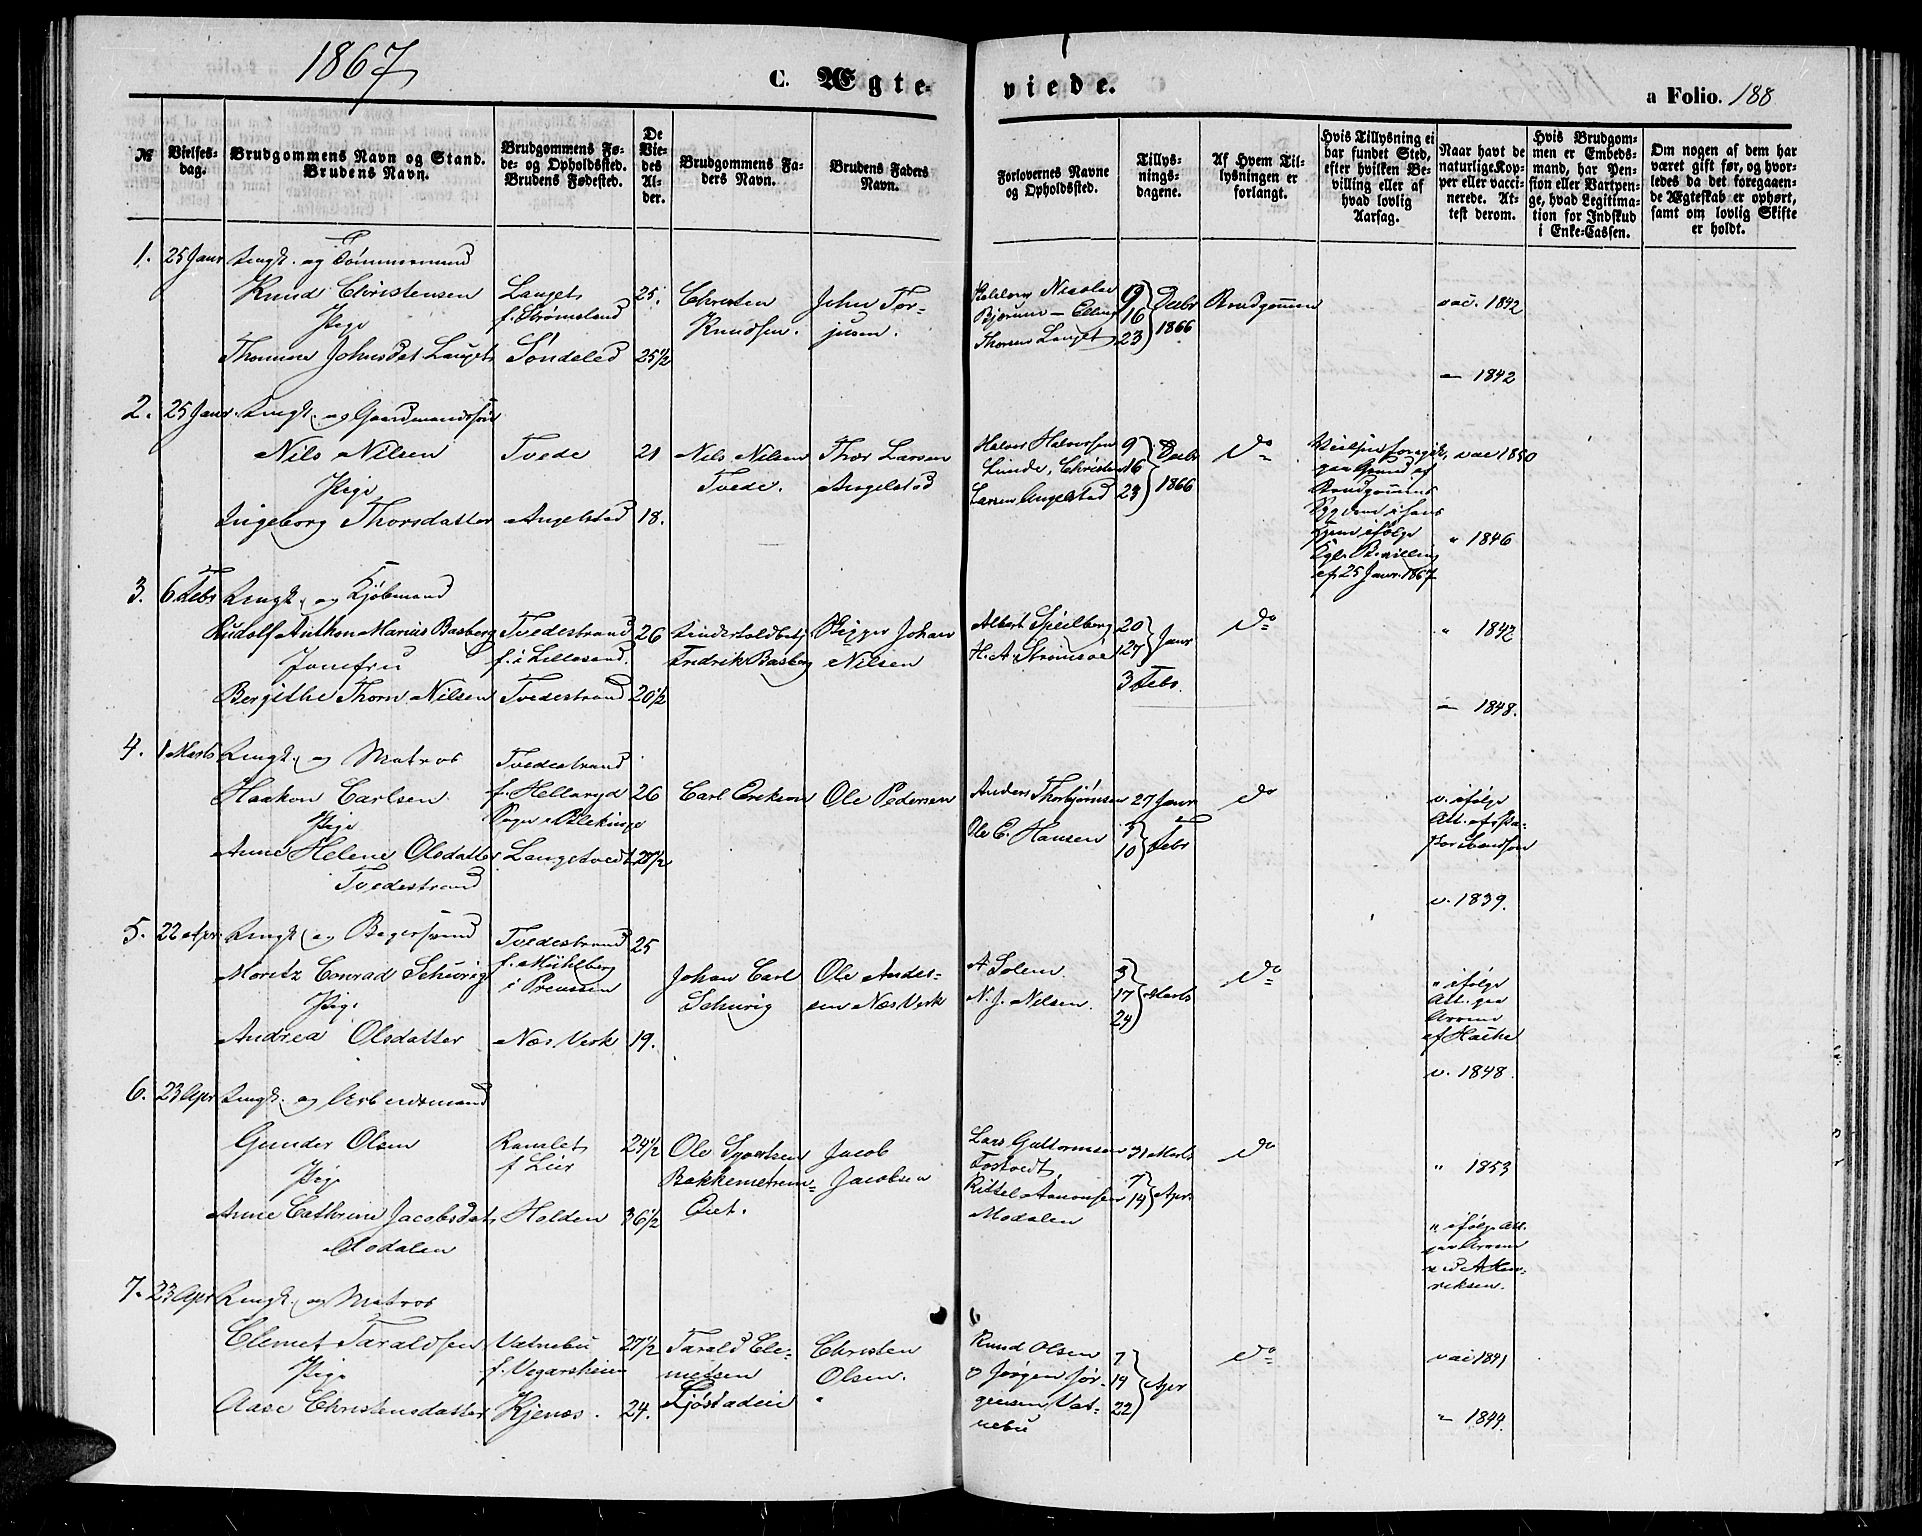 1867
C. Ægte-
viede.
a Folio. 188
№
Vielses-
dag.
Brudgommens Navn og Stand.
Brudens Navn.
Brudgommens Fø-
de- og Opholdssted.
Brudens Fødested.
De
Vie-
des
Al-
der.
Brudgommens Fa-
ders Navn.
Brudens Faders
Navn.
Forlovernes Navne
og Opholdssted.
Tillys-
nings-
dagene.
Af Hvem Til-
lysningen er
forlangt.
Hvis Tillysning ei
har fundet Sted,
efter hvilken Be-
villing eller af
hvad lovlig
Aarsag.
Naar havt de
naturlige Kop-
per eller vacci-
nerede. At-
test derom.
Hvis Brudgom-
men er Embeds-
mand, har Pen-
sion eller Vartpen-
ge, hvad Legitima-
tion for Indskud
i Enke-Cassen.
Om nogen af dem har
været gift før, og hvor-
ledes da det foregaaen-
de Ægteskab er ophørt,
samt om lovlig Skifte
er holdt.
1. 25 Janr Ungk. og Tømmermand
Knud Christensen
Pige
Thomine Johnsdat Langets
Langets
f. Strømsland
Søndeled
25.
25 1/2
Christen
Knudsen.
John Tor-
jusen.
Nicolai
Bjorum - Elling
Thorsen Langet
9
16
23
Decbr
1866
Brudgommen
vac. 1842
— 1842
2. 25 Janr. Ungk. og Gaardmandssøn
Nils Nilsen
Pige
Ingeborg Thorsdatter
Tvede
Angelstad
21
18.
Nils Nilsen
Tvede.
Thor Larsen
Angelstad
Halvor Halvorsen
Lunde, Christen
Larsen Angelstad
9
16
23
Decbr
1866
do
Vielsen foregik
paa Grund af
Brudgommens
Sygdom i hans
Hjem ifølge
Kgl. Bevilling
af 25 Janr. 1867
vac 1850
" 1846
3. 6 Febr Ungk. og Kjøbmand
Rudolf Anthon Marius Basberg
Jomfru
Bergithe Thorn Nilsen
Tvedestrand
f. i Lillesand.
Tvedestrand
26
20 1/2
Fredrik Basberg
Skipper Johan
Nilsen
Albert Speilberg
H. A. Strømsøe
20
27
Janr
3 Febr.
do
" 1842
— 1848.
4. 1 Marts Ungk. og Matros
Haakon Carlsen
Pige
Anne Helene Olsdatter
Tvedestrand
Tvedestrand
f. Hellaryd
Sogn i Blekinge
Langetvedt
26
27 1/2
Carl Erikson
Ole Pedersen
Anders Thorbjørnsen
Ole C. Hansen
27 Janr
3
10
Febr
do
v. ifølge
Att. af
v. 1839.
5. 22 Apr. Ungk. og Bagersvend
Moritz Conrad Schurig
Pige
Andrea Olsdatter
Tvedestrand
f. Mühlberg
i Preussen
Næs Verk
25
19.
Johan Carl
Schurig
Ole Ander-
sen Næs Verk
A Solem.
N. J. Nilsen.
3
17
24
Marts
do
" ifølge
Att. paa
Armen
af Hache
v. 1848.
6. 23 Apr Ungk. og Arbeidsmand
Gunder Olsen
Pige
Anne Cathrine Jacobsdat
Modalen
Ramlet
f Lier
Holden
24 1/2
36 1/2
Ole Syvertsen
Bakkemetrum-
Qiet.
Jacob
Jacobsen
Lars Guttormsen
Fostvedt,
Kittel Aanonsen
Modalen
31 Marts
7
14
Apr
do
" 1853
" ifølge Att.
paa Armen
ved A Hen-
riksen.
7. 23 Apr Ungk. og Matros
Clemet Taraldsen
Pige
Aase Christensdatter
Vatnebu
f. Vegarsheien
Kjenes.
27 1/2
24.
Tarald Cle-
metsen
Fjøstadeie
Christen
Olsen.
"
Knud Olsen
o Jørgen Jør-
gensen, Vat-
nebu
7
14
22
Apr
do
vac 1841
" 1844.